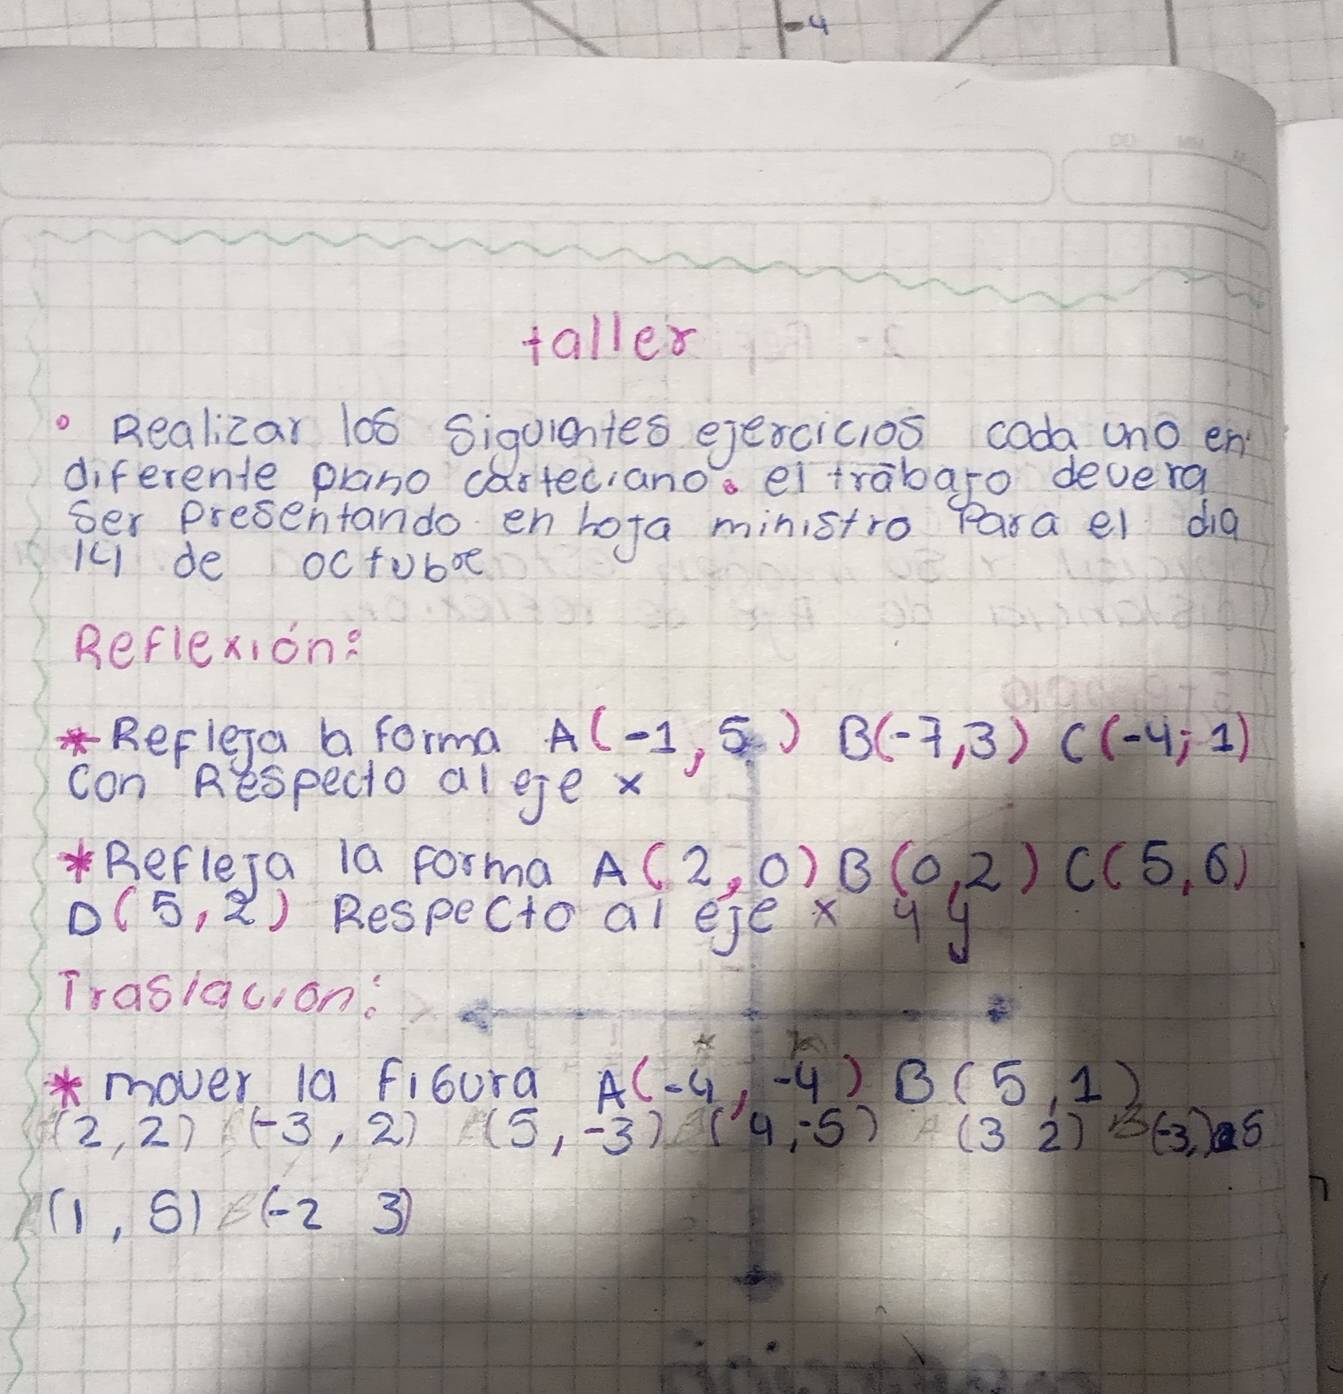 -4
taller
• Realizar los Siguientes ejercicios cada uno en
diferente plano carteciano. el trabajo devera
Ser Presentando en hoja ministro Para el dia
14 de octubre
Reflexión:
* Refleja la forma A(-1,5) B(-7,3) C(-4;1)
con Respecto al eje x
* Refleja la forma A(2,0) B(0,2) C(5,6)
D(5,2) Respecto al eje x y y
Traslación:
* mover la figura A(-4,-4) B(5,1)
(2,2) (-3,2) (5,-3) (4,-5) A (3 2) B(-3,)
(1,5) B(-2 3)